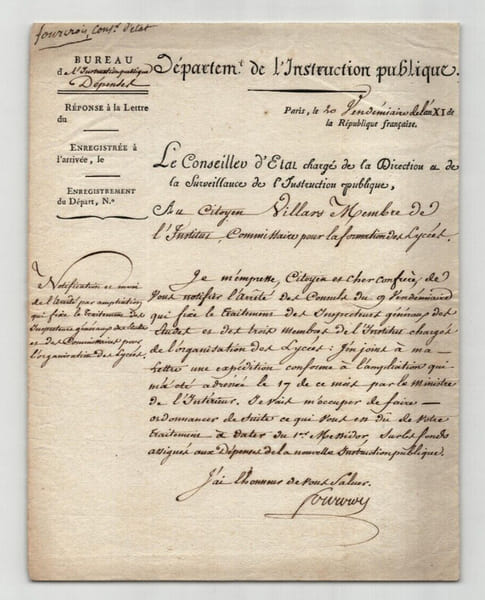 fourcroy, cons.er d'etat
BUREAU
de l'Instruction publique
Dépenses
RÉPONSE à la Lettre
du
ENREGISTRÉE à
l'arrivée, le
ENREGISTREMENT
du Départ, N.º
Départem.t de l'Instruction publique.
Paris, le 20 Vendémiaire de l'an XI de
la République française.
Le Conseiller d'Etat chargé de la Direction et de
la Surveillance de l'Instruction publique,
Au Citoyen Villars Membre de
l'Institut, Commissaire pour la formation des Lycées.
Notification et envoi
de l'arrêté par ampliation,
qui fixe le traitement des
Inspecteurs généraux des études
et des Commissaires pour
l'organisation des Lycées.
Je m'empresse, Citoyen et cher confrère, de
Vous notifier l'arrêté des Consuls du 9 Vendémiaire
qui fixe le traitement des Inspecteurs généraux des
études et des trois membres de l'Institut chargés
de l'organisation des Lycées : J'en joint à ma
Lettre une expédition conforme à l'ampliation qui
m'a été adressée le 17 de ce mois par le Ministre
de l'Intérieur. Je vais m'occuper de faire
ordonnancer de suite ce qui vous est dû de votre
traitement à dater du 1.er Messidor, sur les fonds
assignés aux Dépenses de la nouvelle Instruction publique.
J'ai l'honneur de vous saluer.
Fourcroy